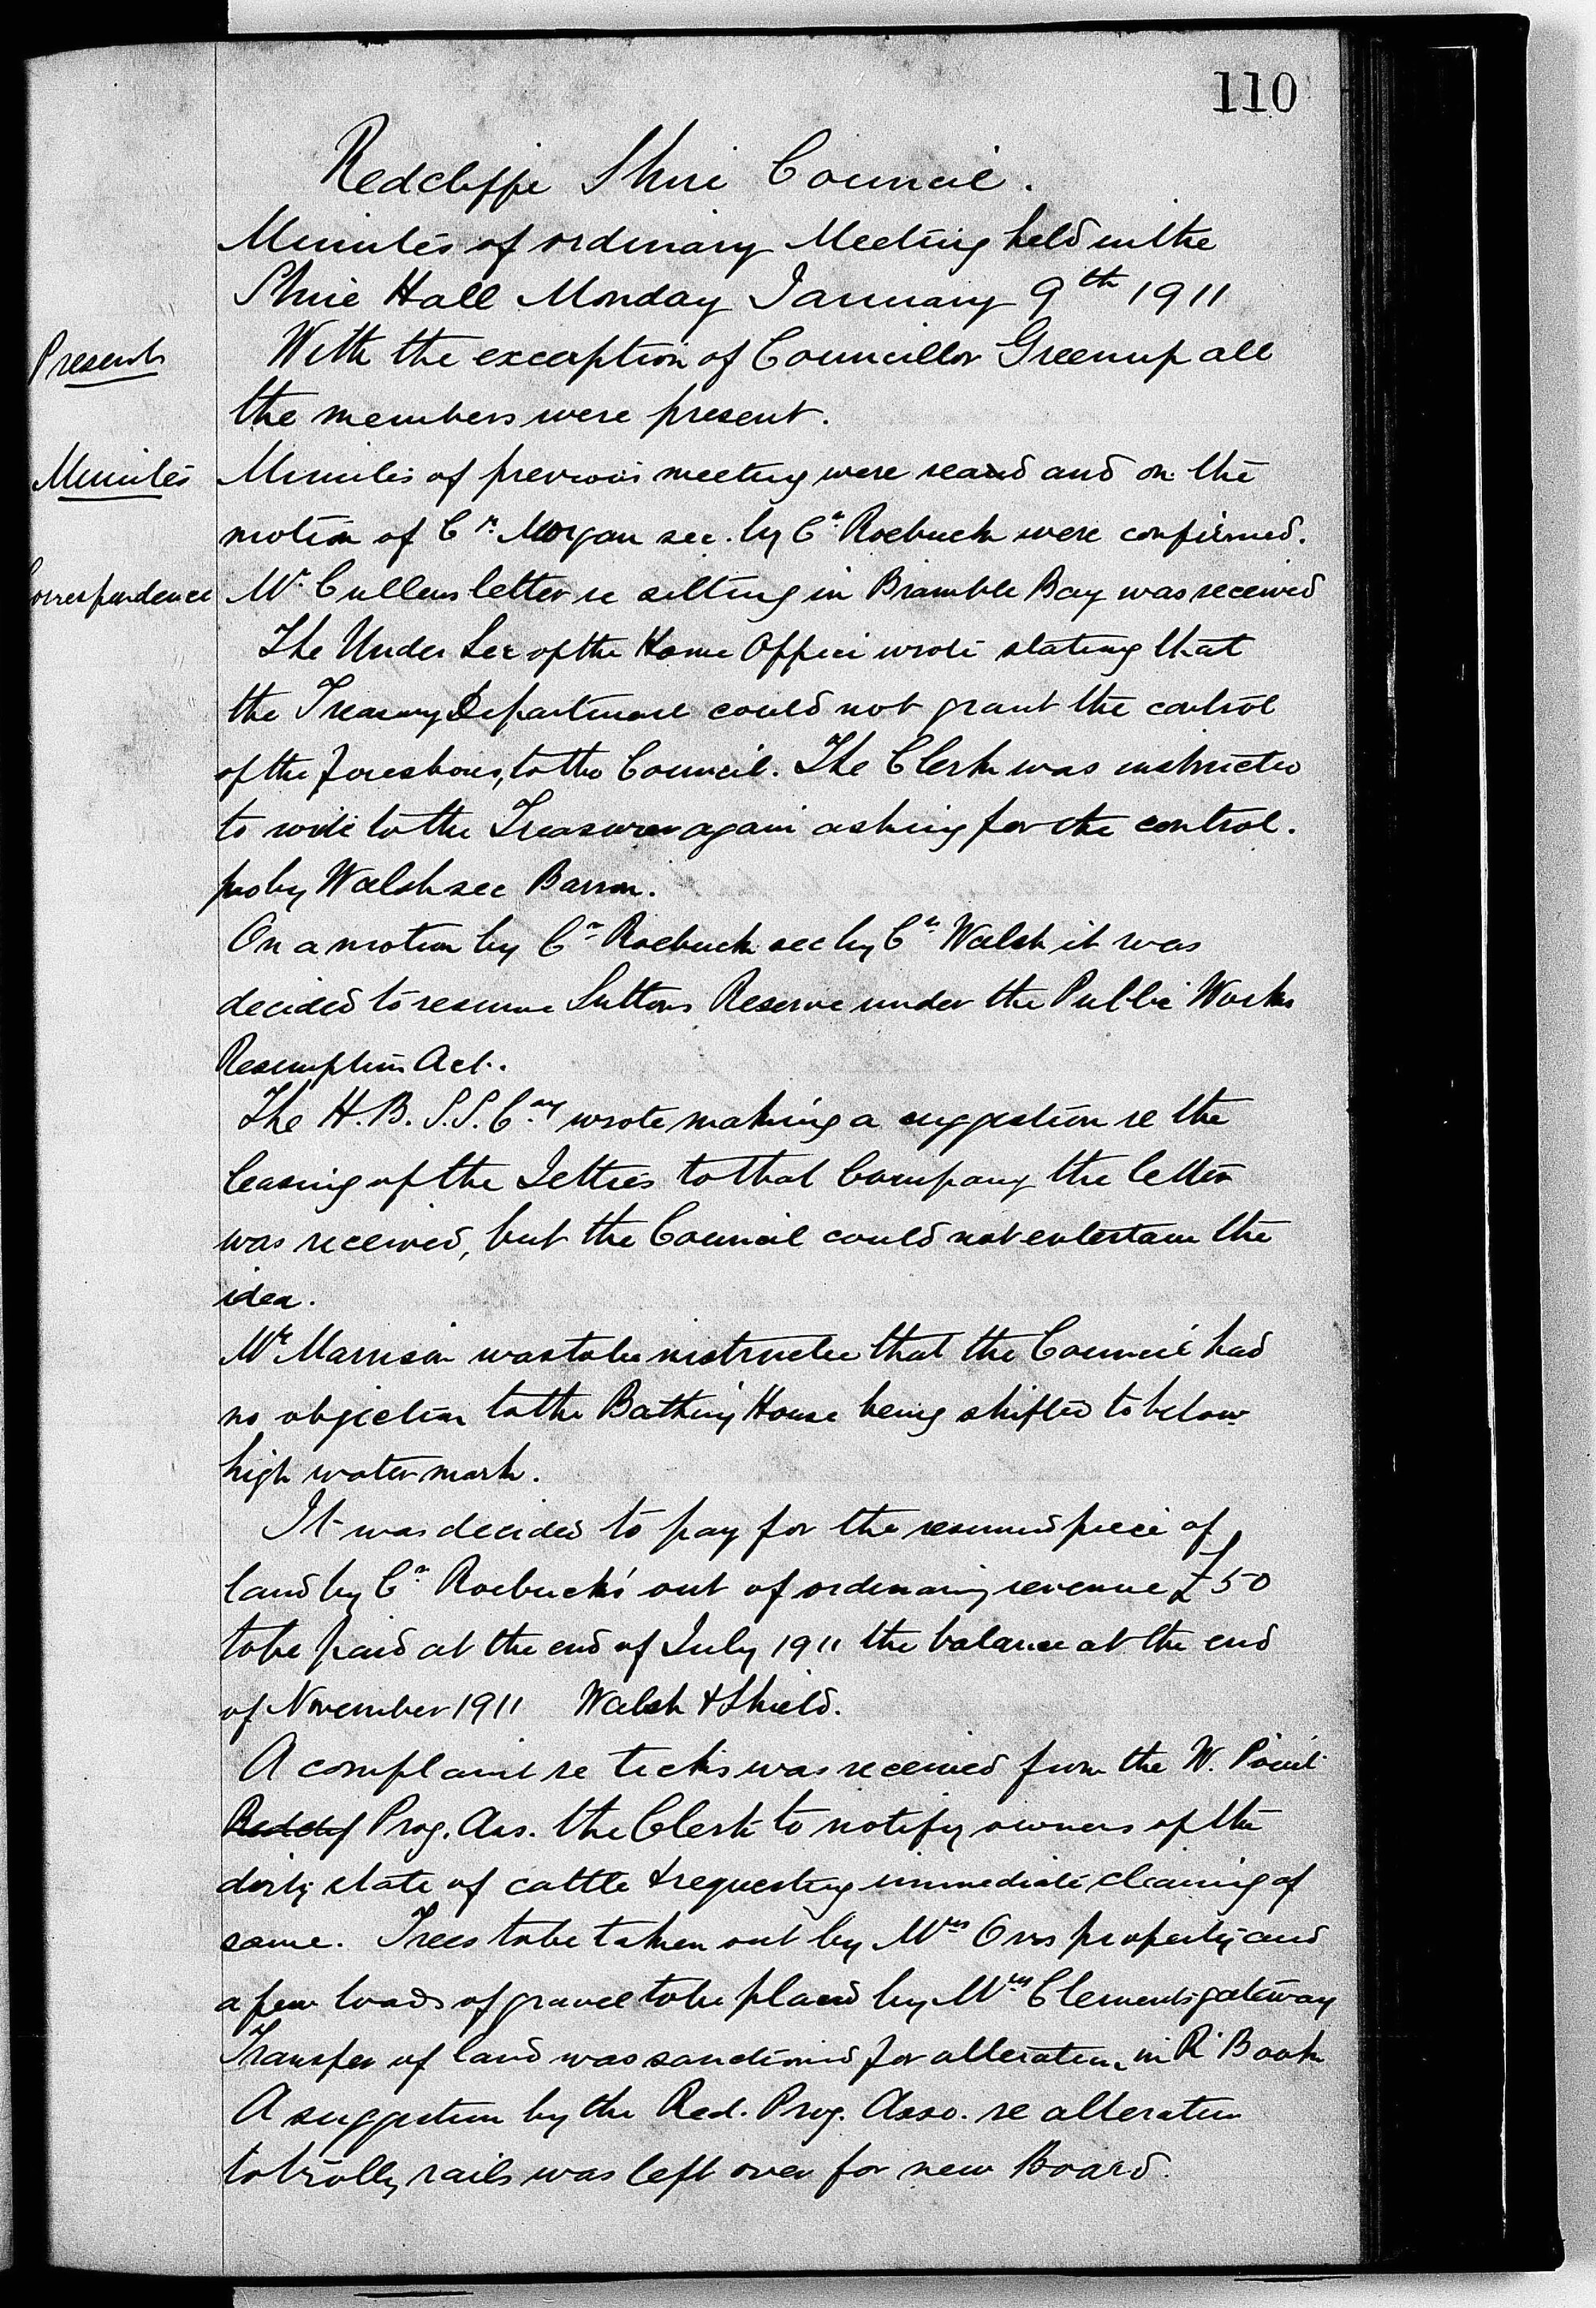 110
Redcliffe Shire Council.
Minutes of ordinary Meeting held in the
Shire Hall Monday January 9th 1911
Present
With the exception of Councillor Greenup all
the members were present.
Minutes
Minutes of previous meeting were read and on the
motion of Cr. Morgan sec. by Cr. Roebuck were confirmed.
Correspondence
Mr. Cullens letter re silting in Bramble Bay was received
The Under Sec of the Home Office wrote stating that
the Treasury Department could not grant the control
of the foreshores, to the Council. The Clerk was instructed
to write to the Treasurer again asking for the control.
pro by Walsh sec Barron.
On a motion by Cr. Roebuck sec by Cr. Walsh it was
decided to resume Suttons Reserve under the Public Works
Resumption Act.
The H.B.S.S. Coy wrote making a suggestion re the
leasing of the Jetties to that Company the letter
was received, but the Council could not entertain the
idea.
Mr was to be instructed that the Council had
no objection to the Bathing House being shifted to below
high water mark.
It was decided to pay for the resumed piece of
land by Cr. Roebuck's out of ordinary revenue £50
to be paid at the end of July 1911 the balance at the end
of November 1911 Walsh & Shield.
A complaint re ticks was received from the W. Point
Redclif Prog. Ass. the Clerk to notify owners of the
dirty state of cattle & requesting immediate cleaning of
same. Trees to be taken out by Mrs Orrs property and
a few loads of gravel to be placed by Mrs Clements gateway
Transfer of land was sanctioned for alteration in R. Book
A suggestion by the Red. Prog. Asso. re alteration
to trolly rails was left over for new Board.